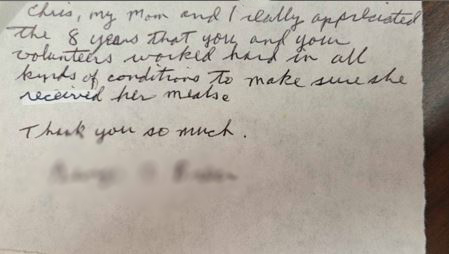 Chris, my Mom and I really appreciated
the 8 years that you and your
volunteers worked hard in all
kinds of conditions to make sure she
received her meals.
Thank you so much.